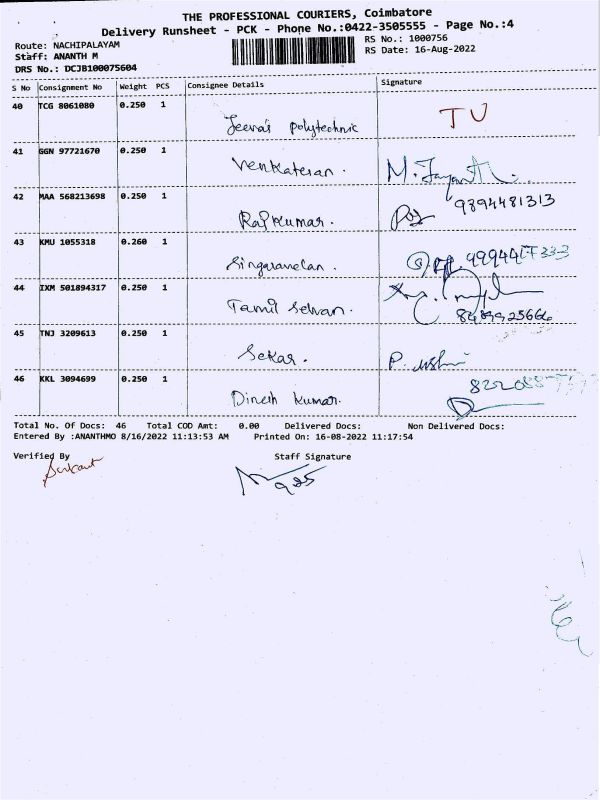 THE PROFESSIONAL COURIERS, Coimbatore
Delivery Runsheet - PCK - Phone No.:0422-3505555 - Page No.:4
Route: NACHIPALAYAM
Staff: ANANTH M
DRS No.: DCJB100075604
RS No.: 1000756
RS Date: 16-Aug-2022
S No Consignment No Weight PCS Consignee Details Signature
40 TCG 8061080 0.250 1
Jeeva's polytechnic
41 GGN 97721670 0.250 1
Venkatesan.
42 MAA 568213698 0.250 1
Rajkumar. 9894481313
43 KMU 1055318 0.260 1
Singaravelan.
44 IXM 501894317 0.250 1
Tamil Selvan.
8489925666
45 TNJ 3209613 0.250 1
Sekar.
46 KKL 3094699 0.250 1
Dinesh Kumar.
Total No. Of Docs: 46 Total COD Amt: 0.00 Delivered Docs: Non Delivered Docs:
Entered By :ANANTHMO 8/16/2022 11:13:53 AM Printed On: 16-08-2022 11:17:54
Verified By Staff Signature